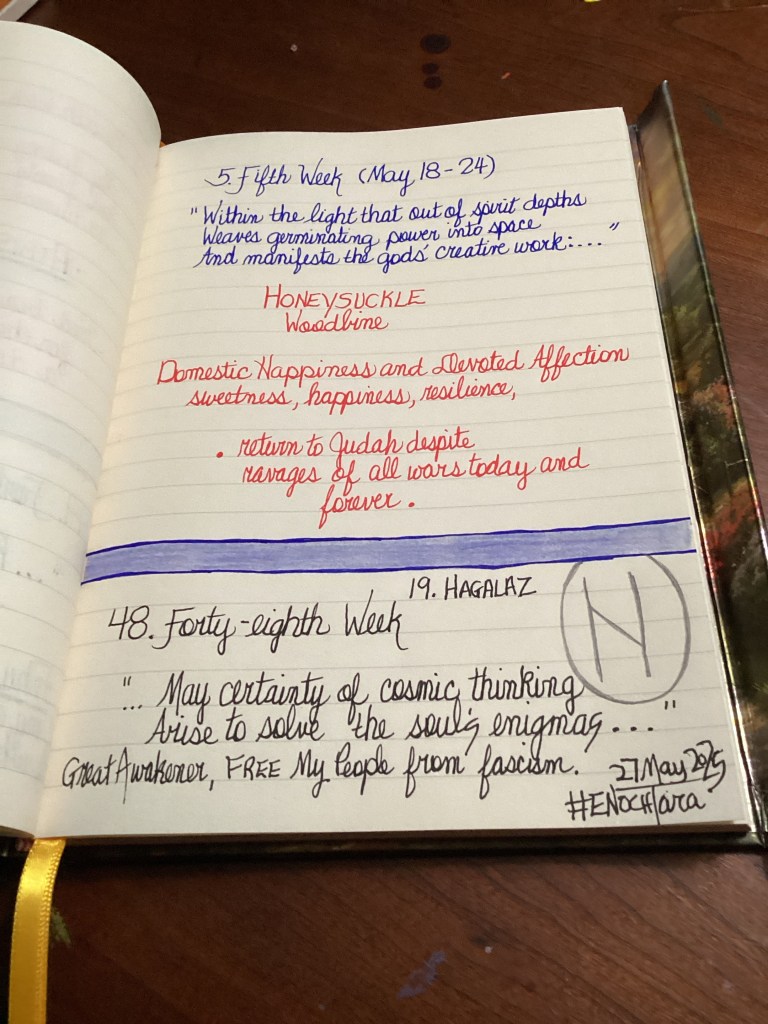 5. Fifth Week (May 18-24)
"Within the light that out of spirit depths
Weaves germinating power into space
And manifests the gods' creative work:...."
HONEYSUCKLE
Woodbine
Domestic Happiness and Devoted Affection
sweetness, happiness, resilience,
. return to Judah despite
ravages of all wars today and
forever.
19. HAGALAZ
48. Forty-eighth Week
"... May certainty of cosmic thinking
Arise to solve the soul's enigmas..."
Great Awakener, FREE My People from fascism.
27 May 2025
#ENOCHlara